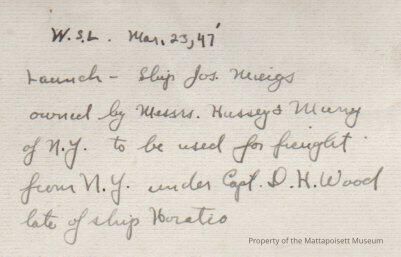 W.S.L. Mar. 23, 47'
Launch - Ship Jos. Meigs
owned by Messrs. Hussey & Murry
of N.Y. to be used for freight
from N.Y. under Capt. D. H. Wood
late of ship Horatio
Property of the Mattapoisett Museum